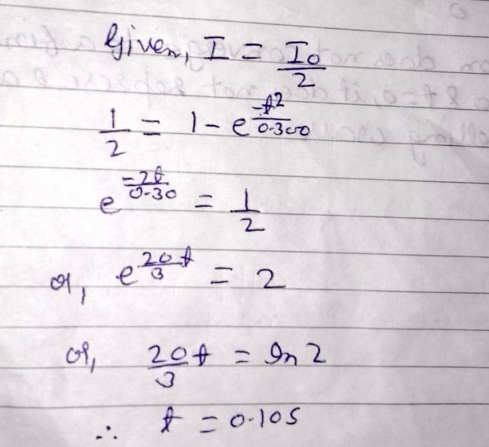 Given, I = I₀/2
1/2 = 1 - e^(-t2/0.300)
e^(-2t/0.30) = 1/2
or, e^(20t/3) = 2
or, 20t/3 = ln 2
∴ t = 0.105